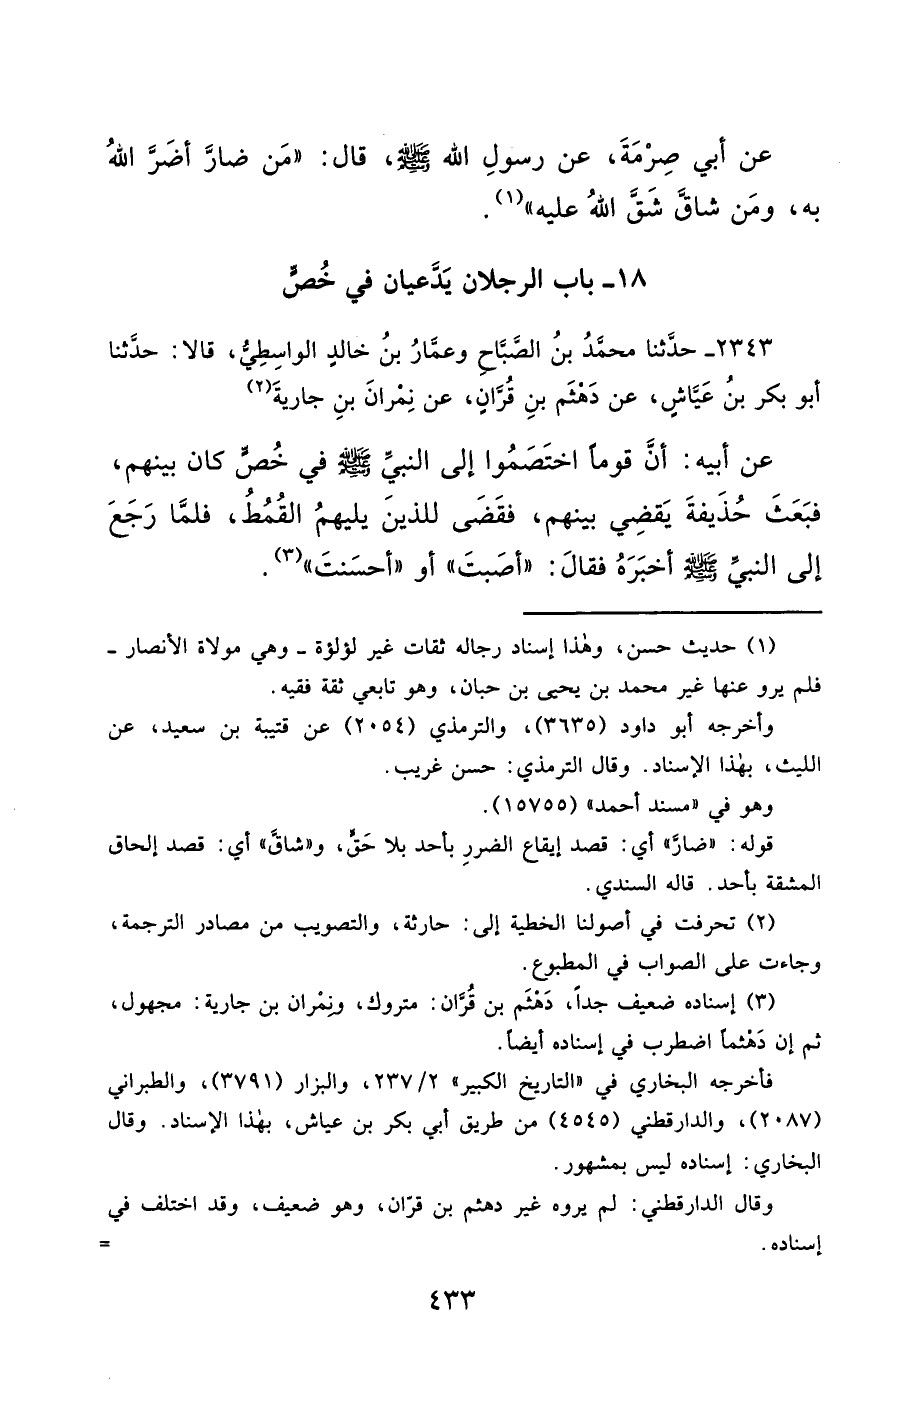 عن أبي صِرْمَةَ، عن رسولِ الله ﷺ، قال: «مَن ضارَّ أضَرَّ اللهُ
به، ومَن شاقَّ شَقَّ اللهُ عليه»(١).
١٨ـ باب الرجلان يَدَّعيان في خُصٍّ
٢٣٤٣ـ حدَّثنا محمَّدُ بنُ الصَّبَّاحِ وعمَّارُ بنُ خالدٍ الواسِطِيُّ، قالا: حدَّثنا
أبو بكر بنُ عَيَّاشٍ، عن دَهْثَم بنِ قُرَّانٍ، عن نِمْرانَ بنِ جاريةَ(٢)
عن أبيه: أنَّ قوماً اختَصَمُوا إلى النبيِّ ﷺ في خُصٍّ كان بينهم،
فبَعَثَ حُذَيفةَ يَقضِي بينهم، فقَضَى للذينَ يليهمُ القُمُطُ، فلمَّا رَجَعَ
إلى النبيِّ ﷺ أخبَرَهُ فقالَ: «أصَبتَ» أو «أحسَنتَ»(٣).
(١) حديث حسن، وهٰذا إسناد رجاله ثقات غير لؤلؤة ـ وهي مولاة الأنصار ـ
فلم يرو عنها غير محمد بن يحيى بن حبان، وهو تابعي ثقة فقيه.
وأخرجه أبو داود (٣٦٣٥)، والترمذي (٢٠٥٤) عن قتيبة بن سعيد، عن
الليث، بهٰذا الإسناد. وقال الترمذي: حسن غريب.
وهو في «مسند أحمد» (١٥٧٥٥).
قوله: «ضارَّ» أي: قصد إيقاع الضررِ بأحد بلا حَقٍّ، و«شاقَّ» أي: قصد إلحاق
المشقة بأحد. قاله السندي.
(٢) تحرفت في أصولنا الخطية إلى: حارثة، والتصويب من مصادر الترجمة،
وجاءت على الصواب في المطبوع.
(٣) إسناده ضعيف جداً، دَهْثَم بن قُرَّان: متروك، ونِمْران بن جارية: مجهول،
ثم إن دَهْثماً اضطرب في إسناده أيضاً.
فأخرجه البخاري في «التاريخ الكبير» ٢/ ٢٣٧، والبزار (٣٧٩١)، والطبراني
(٢٠٨٧)، والدارقطني (٤٥٤٥) من طريق أبي بكر بن عياش، بهٰذا الإسناد. وقال
البخاري: إسناده ليس بمشهور.
وقال الدارقطني: لم يروه غير دهثم بن قرّان، وهو ضعيف، وقد اختلف في
إسناده. =
٤٣٣